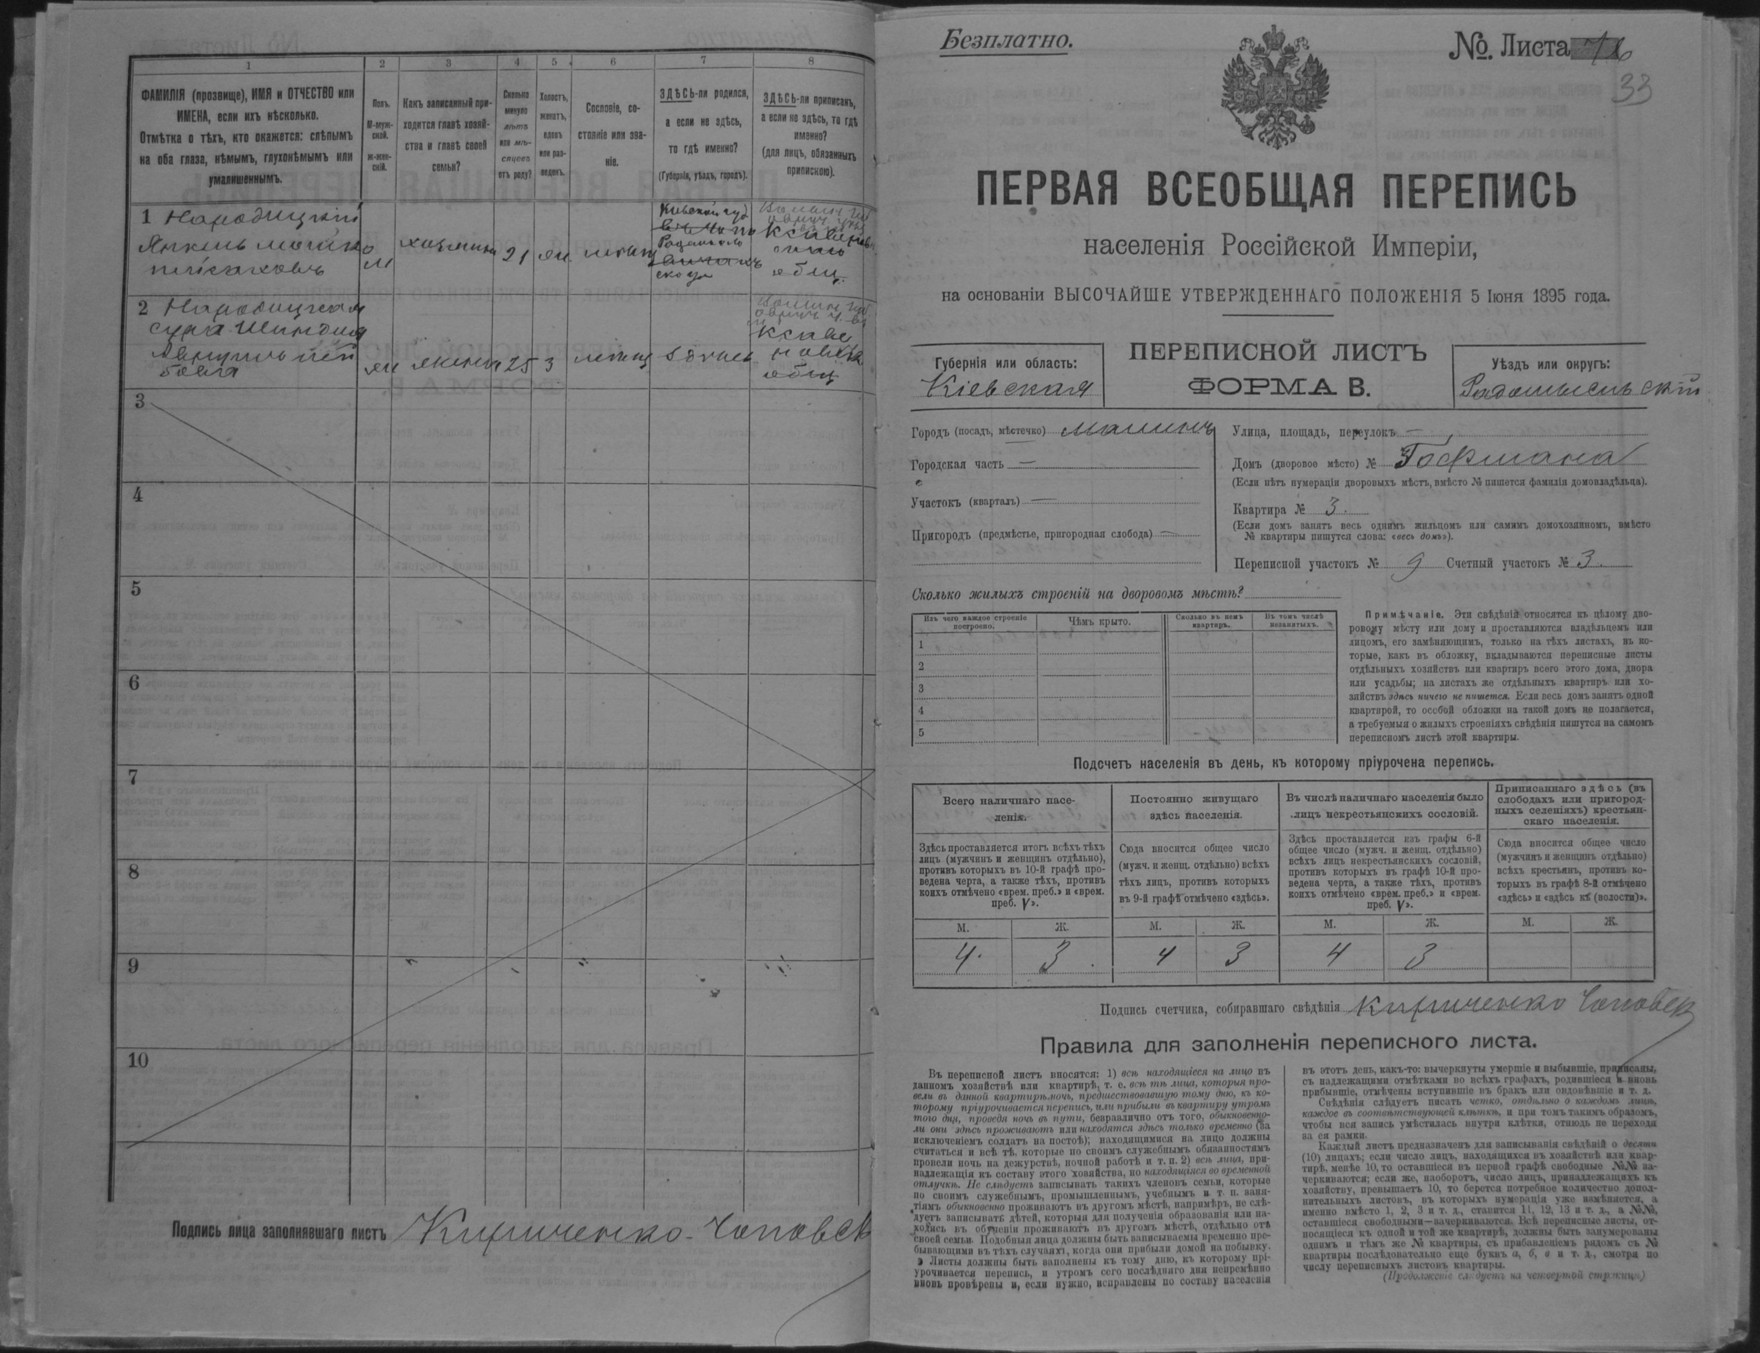 1 2 3 4 5 6 7 8
ФАМИЛІЯ (прозвище), ИМЯ и ОТЧЕСТВО или
ИМЕНА, если ихъ нѣсколько.
Отмѣтка о тѣхъ, кто окажется: слѣпымъ
на оба глаза, нѣмымъ, глухонѣмымъ или
умалишеннымъ.
Полъ.
М-муж-
ской.
ж-жен-
скій.
Какъ записанный при-
ходится главѣ хозяй-
ства и главѣ своей
семьи?
Сколько
минуло
лѣтъ
или мѣ-
сяцевъ
отъ роду?
Холостъ,
женатъ,
вдовъ
или раз-
веденъ.
Сословіе, со-
стояніе или зва-
ніе.
ЗДѢСЬ-ли родился,
а если не здѣсь,
то гдѣ именно?
(Губернія, уѣздъ, городъ).
ЗДѢСЬ-ли приписанъ,
а если не здѣсь, то гдѣ
именно?
(для лицъ, обязанныхъ
припискою).
1 Народицкій
м
хозяинъ
21
2 Народицкая
Сура
25
3
здѣсь
3
4
5
6
7
8
9
10
Подпись лица заполнявшаго листъ Кириченко-
Безплатно.
№. Листа
33
ПЕРВАЯ ВСЕОБЩАЯ ПЕРЕПИСЬ
населенія Россійской Имперіи,
на основаніи ВЫСОЧАЙШЕ УТВЕРЖДЕННАГО ПОЛОЖЕНІЯ 5 Іюня 1895 года.
Губернія или область:
Кіевская
ПЕРЕПИСНОЙ ЛИСТЪ
ФОРМА В.
Уѣздъ или округъ:
Радомысльскій
Городъ (посадъ, мѣстечко) Малинъ
Городская часть —
Участокъ (кварталъ) —
Пригородъ (предмѣстье, пригородная слобода) —
Улица, площадь, переулокъ —
Домъ (дворовое мѣсто) № Гофмана
(Если нѣтъ нумераціи дворовыхъ мѣстъ, вмѣсто № пишется фамилія домовладѣльца).
Квартира № 3.
(Если домъ занятъ весь однимъ жильцомъ или самимъ домохозяиномъ, вмѣсто
№ квартиры пишутся слова: «весь домъ»).
Переписной участокъ № 9 Счетный участокъ № 3.
Сколько жилыхъ строеній на дворовомъ мѣстѣ?
Изъ чего каждое строеніе
построено.
Чѣмъ крыто.
Сколько въ немъ
квартиръ.
Въ томъ числѣ
незанятыхъ.
1
2
3
4
5
Примѣчаніе. Эти свѣдѣнія относятся къ цѣлому дво-
ровому мѣсту или дому и проставляются владѣльцемъ или
лицомъ, его замѣняющимъ, только на тѣхъ листахъ, въ ко-
торые, какъ въ обложку, вкладываются переписные листы
отдѣльныхъ хозяйствъ или квартиръ всего этого дома, двора
или усадьбы; на листахъ же отдѣльныхъ квартиръ или хо-
зяйствъ здѣсь ничего не пишется. Если весь домъ занятъ одной
квартирой, то особой обложки на такой домъ не полагается,
а требуемыя о жилыхъ строеніяхъ свѣдѣнія пишутся на самомъ
переписномъ листѣ этой квартиры.
Подсчетъ населенія въ день, къ которому пріурочена перепись.
Всего наличнаго насе-
ленія.
Здѣсь проставляется итогъ всѣхъ тѣхъ
лицъ (мужчинъ и женщинъ отдѣльно),
противъ которыхъ въ 10-й графѣ про-
ведена черта, а также тѣхъ, противъ
коихъ отмѣчено «врем. преб.» и «врем.
преб. V».
Постоянно живущаго
здѣсь населенія.
Сюда вносится общее число
(мужч. и женщ. отдѣльно) всѣхъ
тѣхъ лицъ, противъ которыхъ
въ 9-й графѣ отмѣчено «здѣсь».
Въ числѣ наличнаго населенія было
лицъ некрестьянскихъ сословій.
Здѣсь проставляется изъ графы 6-й
общее число (мужч. и женщ. отдѣльно)
всѣхъ лицъ некрестьянскихъ сословій,
противъ которыхъ въ графѣ 10-й про-
ведена черта, а также тѣхъ, противъ
коихъ отмѣчено «врем. преб.» и «врем.
преб. V».
Приписаннаго здѣсь (въ
слободахъ или пригород-
ныхъ селеніяхъ) крестьян-
скаго населенія.
Сюда вносится общее число
(мужчинъ и женщинъ отдѣльно)
всѣхъ крестьянъ, противъ ко-
торыхъ въ графѣ 8-й отмѣчено
«здѣсь» и «здѣсь къ (волости)».
М. Ж. М. Ж. М. Ж. М. Ж.
4 3 4 3 4 3
Подпись счетчика, собиравшаго свѣдѣнія Кириченко
Правила для заполненія переписного листа.
Въ переписной листъ вносятся: 1) всѣ находящіеся на лицо въ
данномъ хозяйствѣ или квартирѣ, т. е. всѣ тѣ лица, которыя про-
вели въ данной квартирѣ ночь, предшествовавшую тому дню, къ ко-
торому пріурочивается перепись, или прибыли въ квартиру утромъ
того дня, проведя ночь въ пути, безразлично отъ того, обыкновенно-
ли они здѣсь проживаютъ или находятся здѣсь только временно (за
исключеніемъ солдатъ на постоѣ); находящимися на лицо должны
считаться и всѣ тѣ, которые по своимъ служебнымъ обязанностямъ
провели ночь на дежурствѣ, ночной работѣ и т. п. 2) всѣ лица, при-
надлежащія къ составу этого хозяйства, но находящіяся во временной
отлучкѣ. Не слѣдуетъ записывать такихъ членовъ семьи, которые
по своимъ служебнымъ, промышленнымъ, учебнымъ и т. п. заня-
тіямъ обыкновенно проживаютъ въ другомъ мѣстѣ, напримѣръ, не слѣ-
дуетъ записывать дѣтей, которыя для полученія образованія или на-
ходясь въ обученіи проживаютъ въ другомъ мѣстѣ, отдѣльно отъ
своей семьи. Подобныя лица должны быть записываемы временно пре-
бывающими въ тѣхъ случаяхъ, когда они прибыли домой на побывку.
Листы должны быть заполнены къ тому дню, къ которому прі-
урочивается перепись, и утромъ сего послѣдняго дня непремѣнно
вновь провѣрены и, если нужно, исправлены по составу населенія
въ этотъ день, какъ-то: вычеркнуты умершіе и выбывшіе, приписаны,
съ надлежащими отмѣтками во всѣхъ графахъ, родившіеся и вновь
прибывшіе, отмѣчены вступившіе въ бракъ или овдовѣвшіе и т. д.
Свѣдѣнія слѣдуетъ писать четко, отдѣльно о каждомъ лицѣ,
каждое въ соотвѣтствующей клѣткѣ, и при томъ такимъ образомъ,
чтобы вся запись умѣстилась внутри клѣтки, отнюдь не переходя
за ея рамки.
Каждый листъ предназначенъ для записыванія свѣдѣній о десяти
(10) лицахъ; если число лицъ, находящихся въ хозяйствѣ или квар-
тирѣ, менѣе 10, то оставшіеся въ первой графѣ свободные №№ за-
черкиваются; если же, наоборотъ, число лицъ, принадлежащихъ къ
хозяйству, превышаетъ 10, то берется потребное количество допол-
нительныхъ листовъ, въ которыхъ нумерація уже измѣняется, а
именно вмѣсто 1, 2, 3 и т. д., ставится 11, 12, 13 и т. д., а №№,
оставшіеся свободными—зачеркиваются. Всѣ переписные листы, от-
носящіеся къ одной и той же квартирѣ, должны быть занумерованы
однимъ и тѣмъ же № квартиры, съ прибавленіемъ рядомъ съ №
квартиры послѣдовательно еще буквъ а, б, в и т. д., смотря по
числу переписныхъ листовъ квартиры.
(Продолженіе слѣдуетъ на четвертой страницѣ)